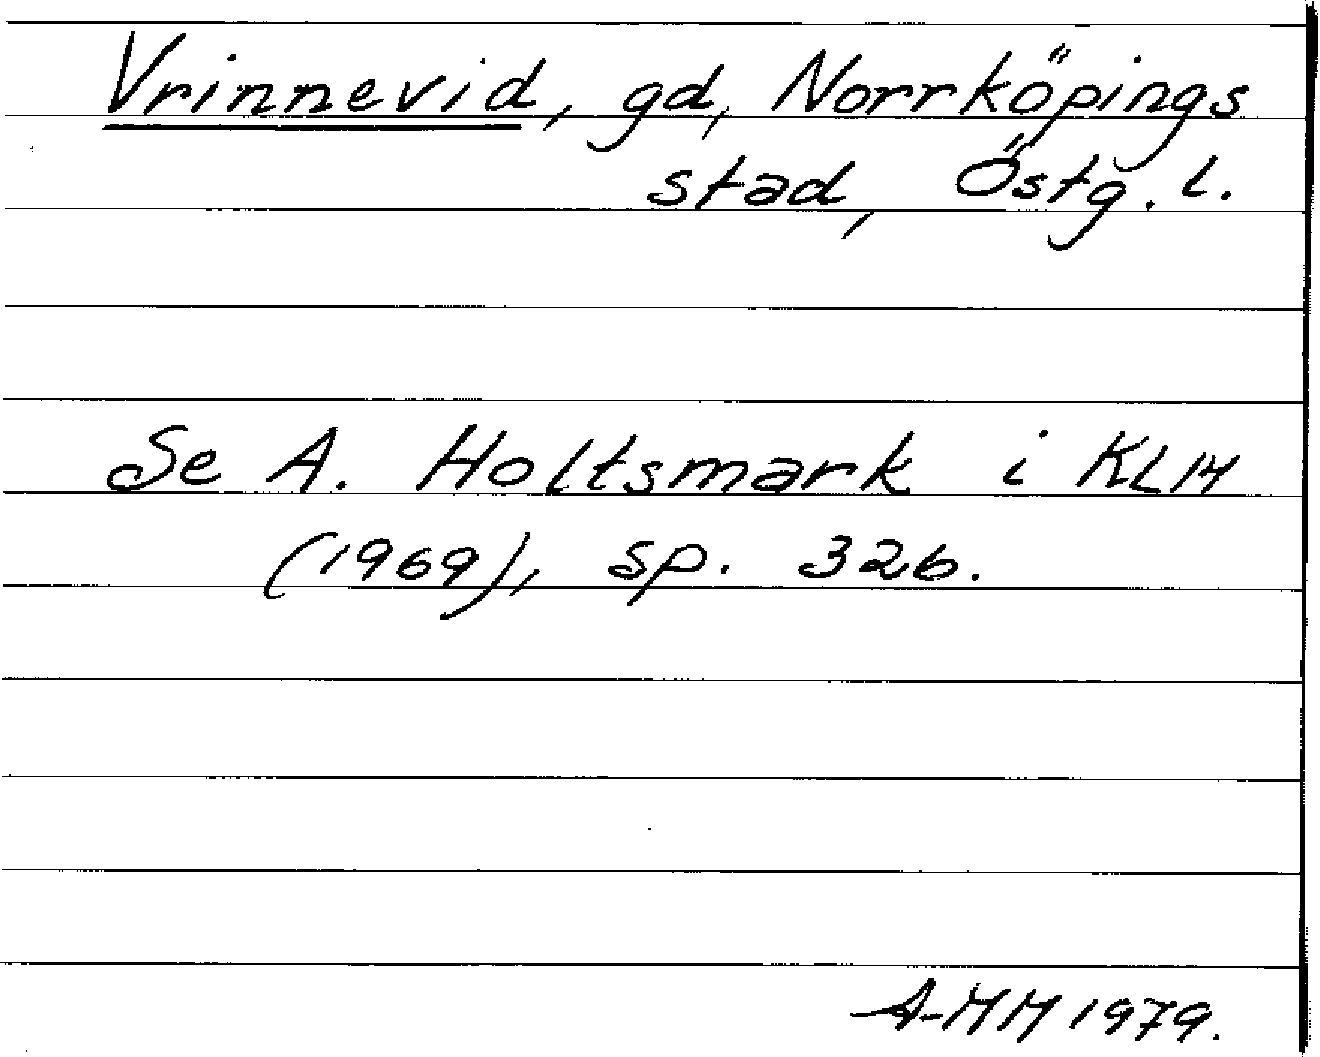 Vrinnevid, gd, Norrköpings
stad, Östg. l.
Se A. Holtsmark i KL14
(1969), sp. 326.
A-MM 1979.